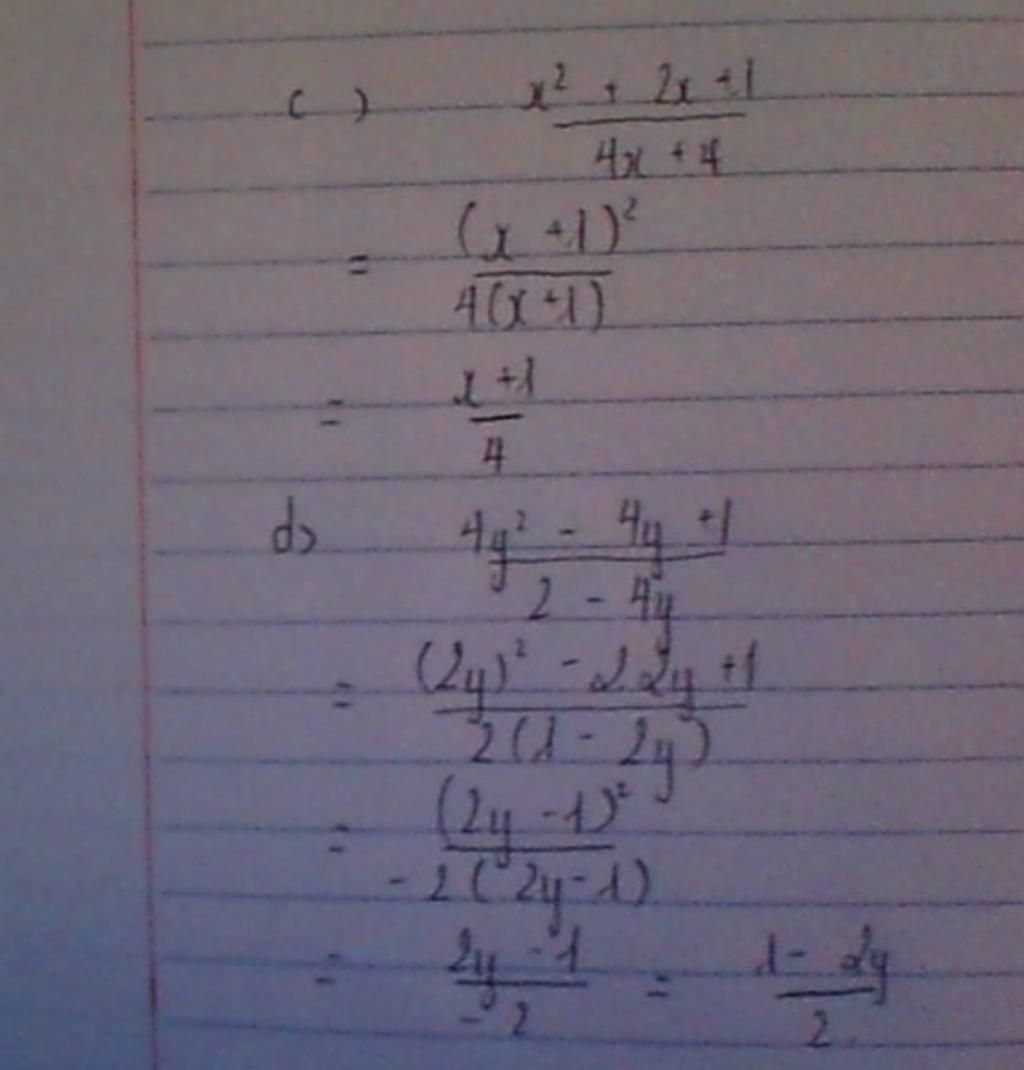 c) \frac{x^2 + 2x + 1}{4x + 4}
= \frac{(x + 1)^2}{4(x + 1)}
= \frac{x + 1}{4}
d) \frac{4y^2 - 4y + 1}{2 - 4y}
= \frac{(2y)^2 - 2.2y + 1}{2(1 - 2y)}
= \frac{(2y - 1)^2}{-2(2y - 1)}
= \frac{2y - 1}{-2} = \frac{1 - 2y}{2}.